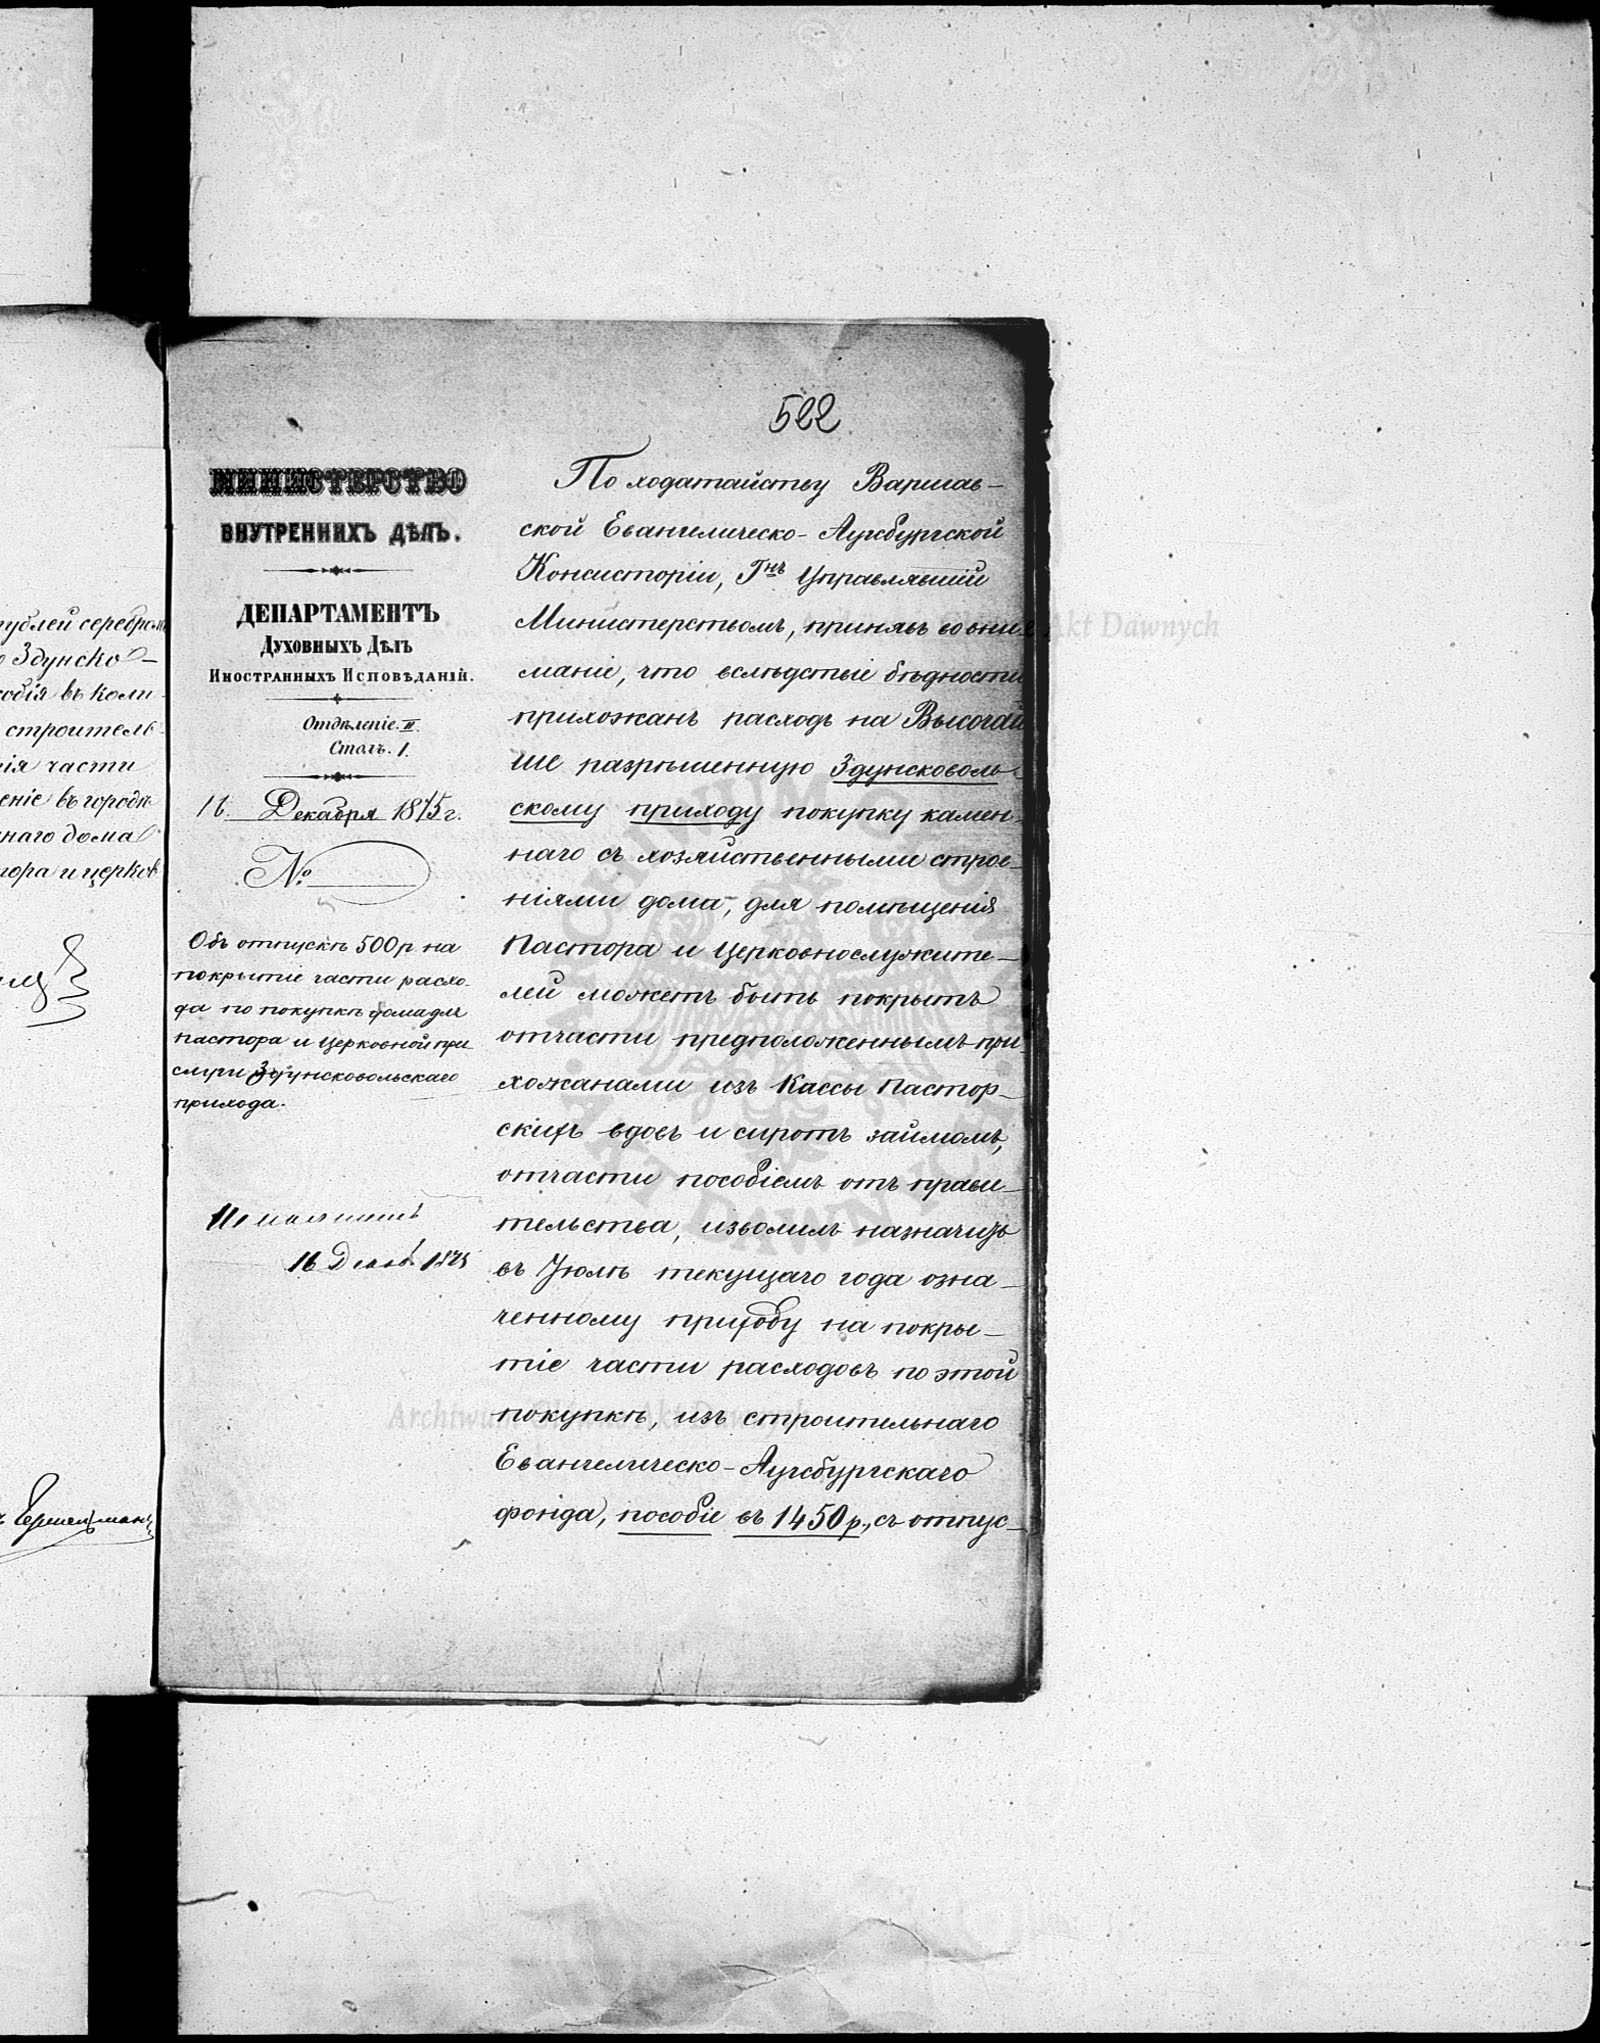 рублей серебромъ
Здунско-
собія въ коли-
строитель-
нія части
еніе въ городѣ
наго дома
тора и церков
522
МИНИСТЕРСТВО
ВНУТРЕННИХЪ ДѢЛЪ.
ДЕПАРТАМЕНТЪ
Духовныхъ Дѣлъ
Иностранныхъ Исповѣданій.
Отдѣленіе II.
Столъ. 1.
16. Декабря 1875 г.
№
Объ отпускѣ 500 р. на
покрытіе части расхо-
да по покупкѣ дома для
пастора и церковной при
слуги Здунсковольскаго
прихода.
16 Декаб. 1875
По ходатайству Варшав-
ской Евангелическо-Аугсбургской
Консисторіи, Гнъ Управлявшій
Министерствомъ, принявъ во вни
маніе, что вслѣдствіе бѣдности
прихожанъ расходъ на Высочай
ше разрѣшенную Здунсковоль-
скому приходу покупку камен-
наго съ хозяйственными строе-
ніями дома, для помѣщенія
Пастора и церковнослужите-
лей можетъ быть покрытъ
отчасти предположеннымъ при-
хожанами изъ Кассы Пастор-
скихъ вдовъ и сиротъ займомъ,
отчасти пособіемъ отъ прави-
тельства, изволилъ назначить
въ Іюлѣ текущаго года озна-
ченному приходу на покры-
тіе части расходовъ по этой
покупкѣ, изъ строительнаго
Евангелическо-Аугсбургскаго
фонда, пособіе въ 1450 р., съ отпус-
Archiwum Główne Akt Dawnych